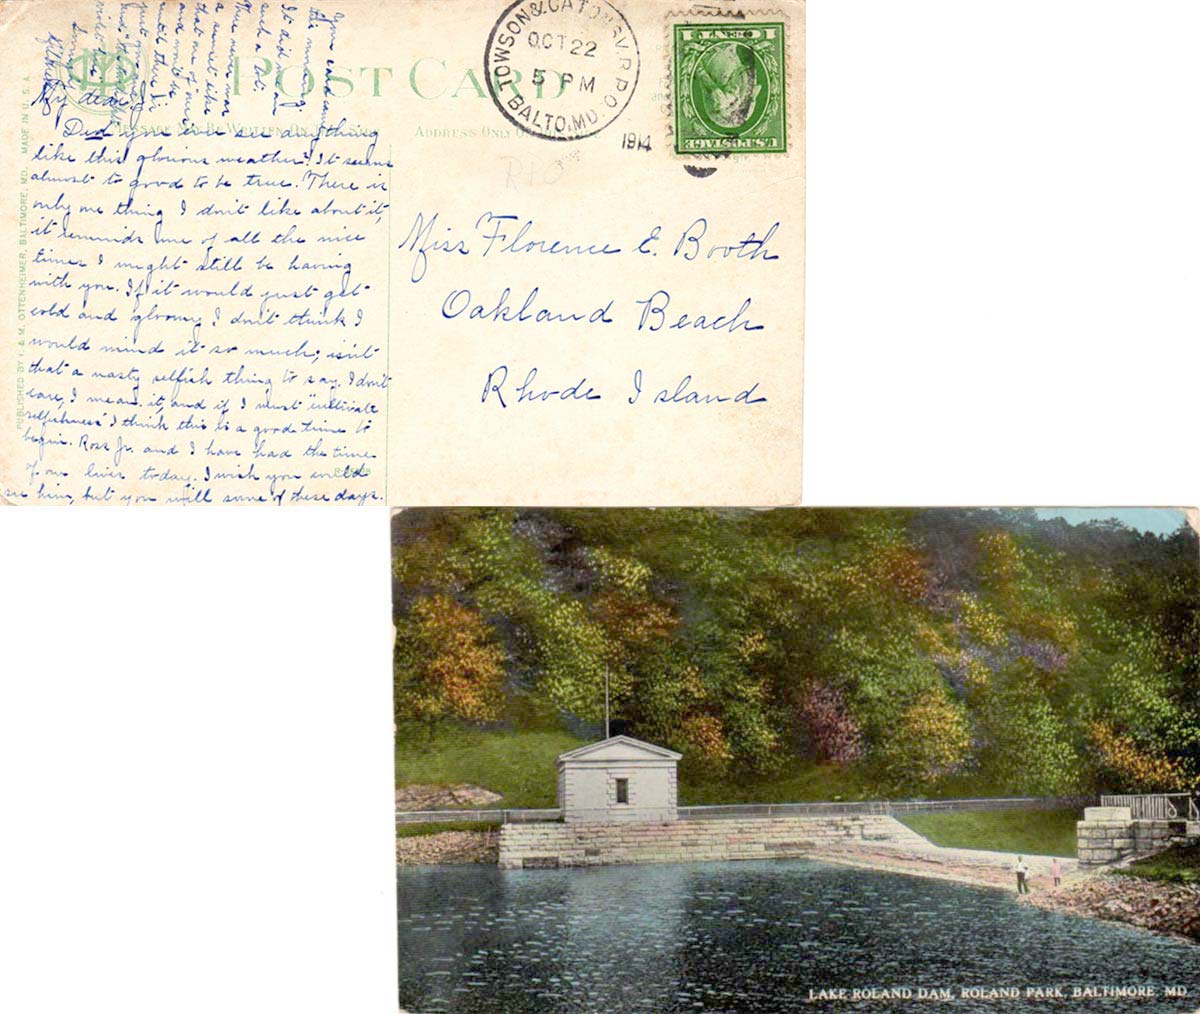 POST CARD
MESSAGE MAY BE WRITTEN ON
ADDRESS ONLY ON
TOWSON & CATONSV. R.P.O.
OCT 22
5 PM
BALTO. MD.
1914
U.S. POSTAGE
1 CENT 1
R10
PUBLISHED BY I. & M. OTTENHEIMER, BALTIMORE, MD. MADE IN U.S.A.
My dear
Did you ever see anything
like this glorious weather? It seems
almost to good to be true. There is
only one thing I don't like about it,
it reminds me of all the nice
times I might still be having
with you. If it would just get
cold and gloomy I don't think I
would mind it so much; isn't
that a nasty selfish thing to say. I don't
care, I mean it, and if I must "cultivate
selfishness" I think this is a good time to
begin. Ross Jr. and I have had the time
of our lives today. I wish you could
see him, but you will some of these days.
Your card came
this morning.
It did mean
such a lot.
There never was
a sunset like
that one of ours
and won't be
until there is
just
Miss Florence E. Booth
Oakland Beach
Rhode Island
LAKE ROLAND DAM, ROLAND PARK, BALTIMORE, MD.